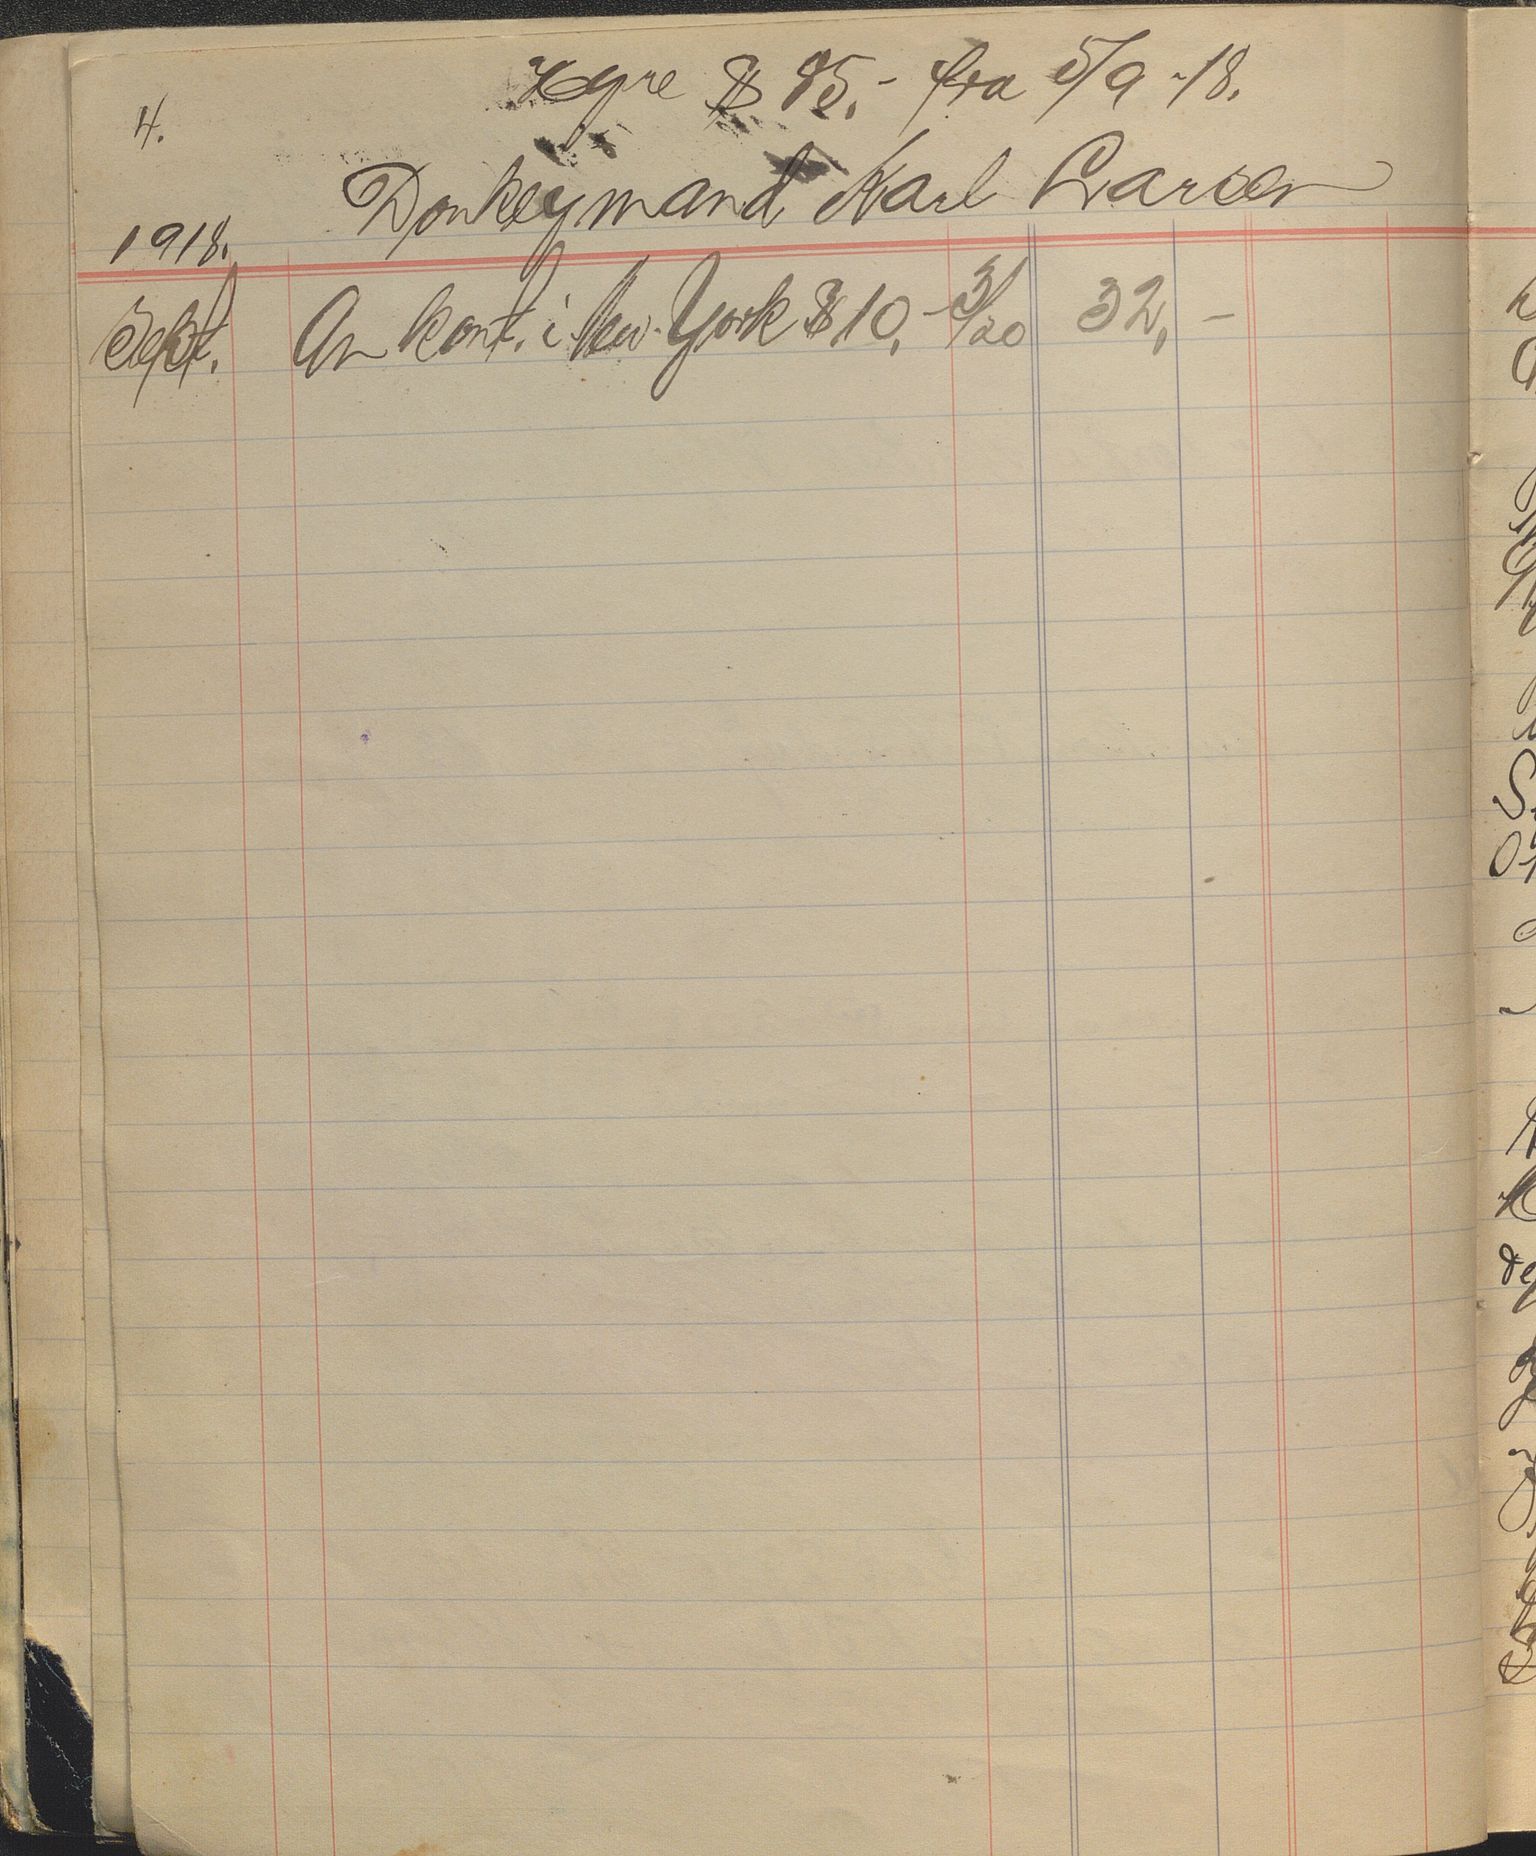 4.
Hyre $ 85,- fra 5/9 -18.
Donkeymand Karl Larsen
1918.
Sept. An kont. i New-York $ 10,- 3/20 32,-